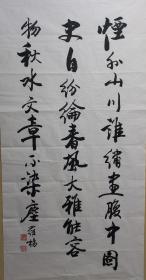 烟外山川谁绣画腹中图
史自纷伦春风大雅能容
物秋水文章不染尘